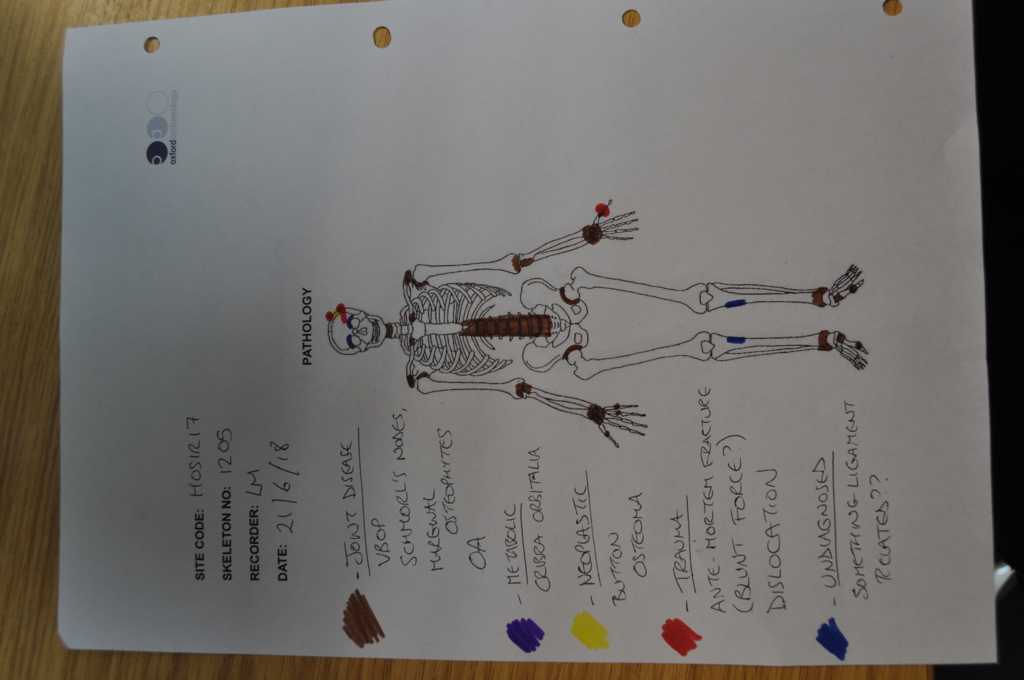 oxfordarchaeology
SITE CODE: HOSIR17
SKELETON NO: 1205
RECORDER: LM
DATE: 21/6/18
PATHOLOGY
- JOINT DISEASE
VBOP
SCHMORL'S NODES,
MARGINAL
OSTEOPHYTES
OA
- METABOLIC
CRIBRA ORBITALIA
- NEOPLASTIC
BUTTON
OSTEOMA
- TRAUMA
ANTE-MORTEM FRACTURE
(BLUNT FORCE?)
DISLOCATION
- UNDIAGNOSED
SOMETHING LIGAMENT
RELATED??